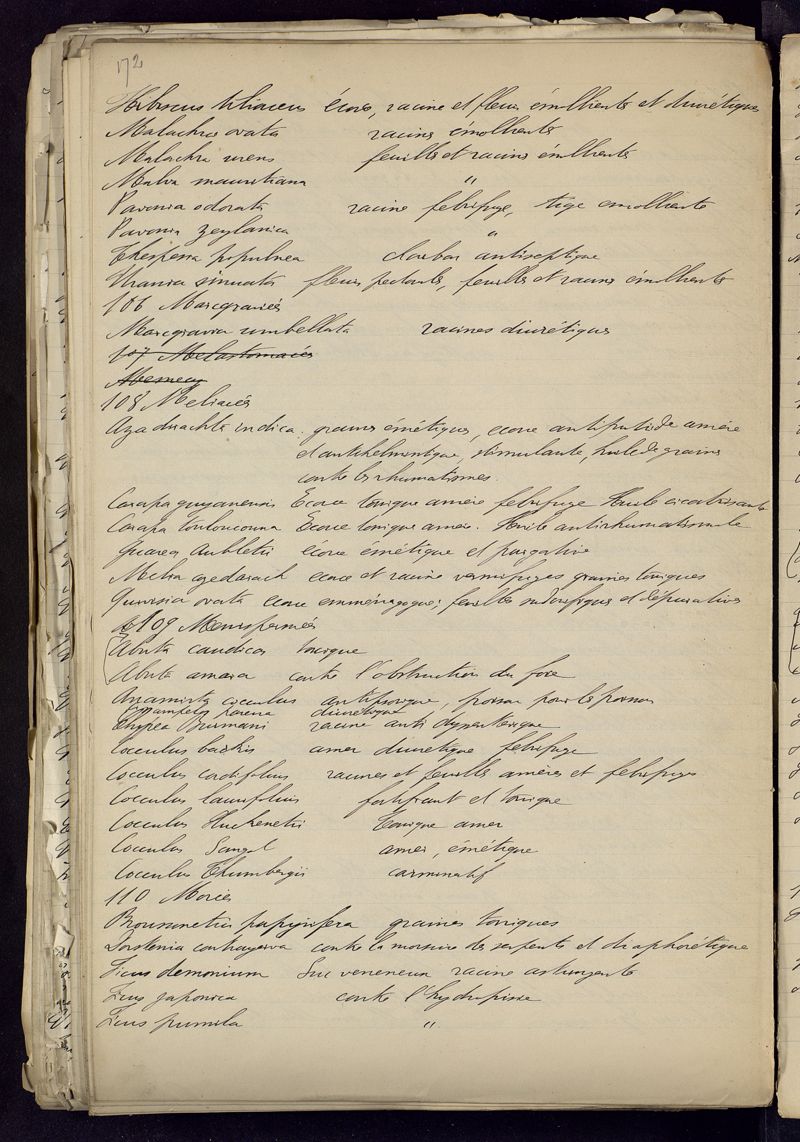 172
Hibiscus tiliaceus écorce, racine et fleurs émollients et diurétiques
Malachra ovata racines émollients
Malachra urens feuilles et racines émollients
Malva mauritiana "
Pavonia odorata racine febrifuge, tige emolliente
Pavonia zeylanica "
Thespesia populnea antiseptique
Urania sinuata fleurs pectorales, feuilles et racines émollients
106 Marcgraviées
Marcgravia umbellata racines diurétiques
107 Melastomacées
108 Meliacées
Azadirachta indica. graines émétiques, ecorce antiputride amère
et antihelmentique, stimulante, huile de graines
contre les rhumatismes.
Carapa guyanensis Ecorce tonique amère febrifuge Huile cicatrisante
Carapa touloucouna Ecorce tonique amère. Huile antirhumatismale
Guarea Aubletii écorce émétique et purgative
Melia azedarach ecorce et racine vermifuges graines toniques
Quivisia ovata ecorce emménagogue; feuilles sudorifiques et dépuratives
109 Menispermées
Abuta candicas tonique
Abuta amara contre l'obstruction du foie
Anamirta cocculus antipsorique, poison pour les poissons
Cissampelos pareira diurétique
Clypea Burmani racine anti dysenterique
Cocculus bakis amer diurétique febrifuge
Cocculus cordifolius racines et feuilles amères et febrifuges
Cocculus laurifolius fortifiant et tonique
Cocculus tonique amer
Cocculus Sangol amer, émétique
Cocculus Thumbergii carminatif
110 Morées
Broussonetia papyrifera graines toniques
Dorstenia contrayerva contre la morsure des serpents et diaphorétique
Ficus demonium Suc veneneux racine astringente
Ficus japonica contre l'hydropisie
Ficus pumila "